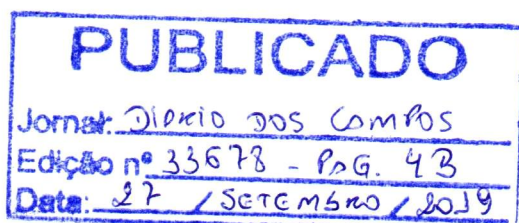 PUBLICADO
Jornal: DIÁRIO DOS CAMPOS
Edição nº 33678 - PÁG. 4B
Data: 27 / SETEMBRO / 2019